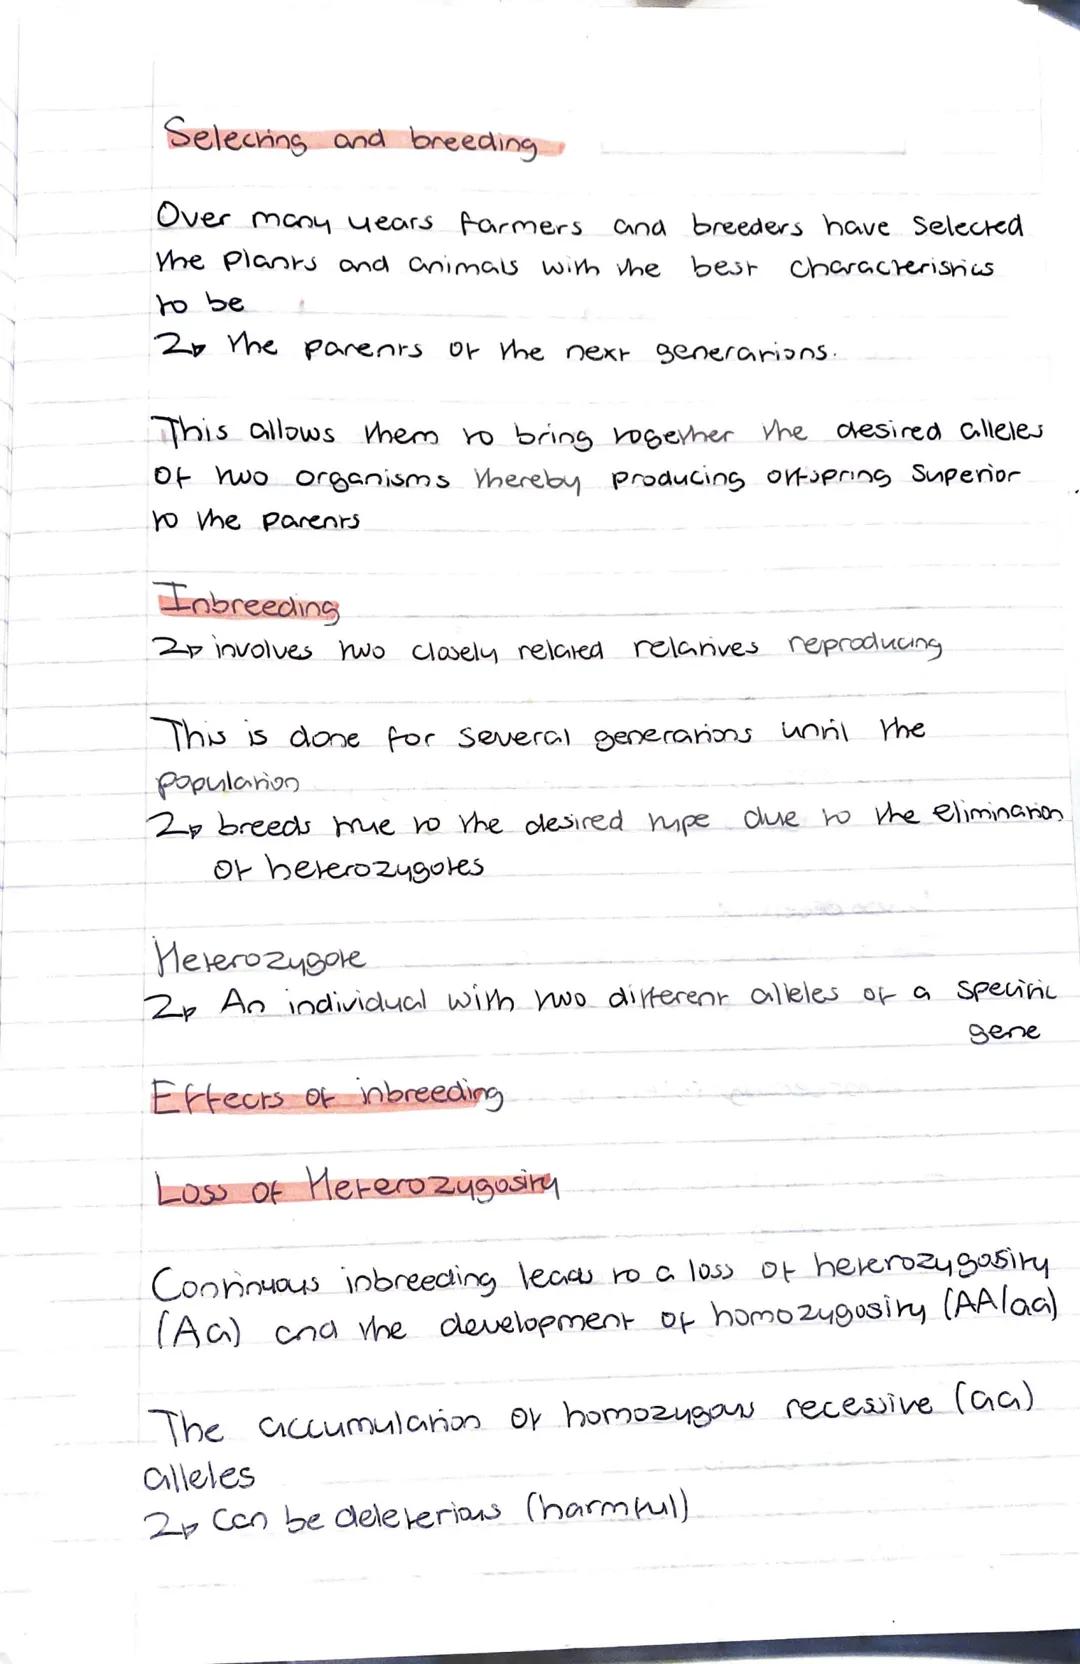 Selecting and breeding
Over many years farmers and breeders have selected
the plants and animals with the best characteristics
to be
↳ the parents of the next generations.
This allows them to bring together the desired alleles
of two organisms thereby producing offspring superior
to the parents
Inbreeding
↳ involves two closely related relatives reproducing
This is done for several generations until the
population
↳ breeds true to the desired type due to the elimination
of heterozygotes
Heterozygote
↳ An individual with two different alleles of a specific
gene
Effects of inbreeding
Loss of Heterozygosity
Continuous inbreeding leads to a loss of heterozygosity
(Aa) and the development of homozygosity (AA/aa)
The accumulation of homozygous recessive (aa)
alleles
↳ Can be deleterious (harmful)